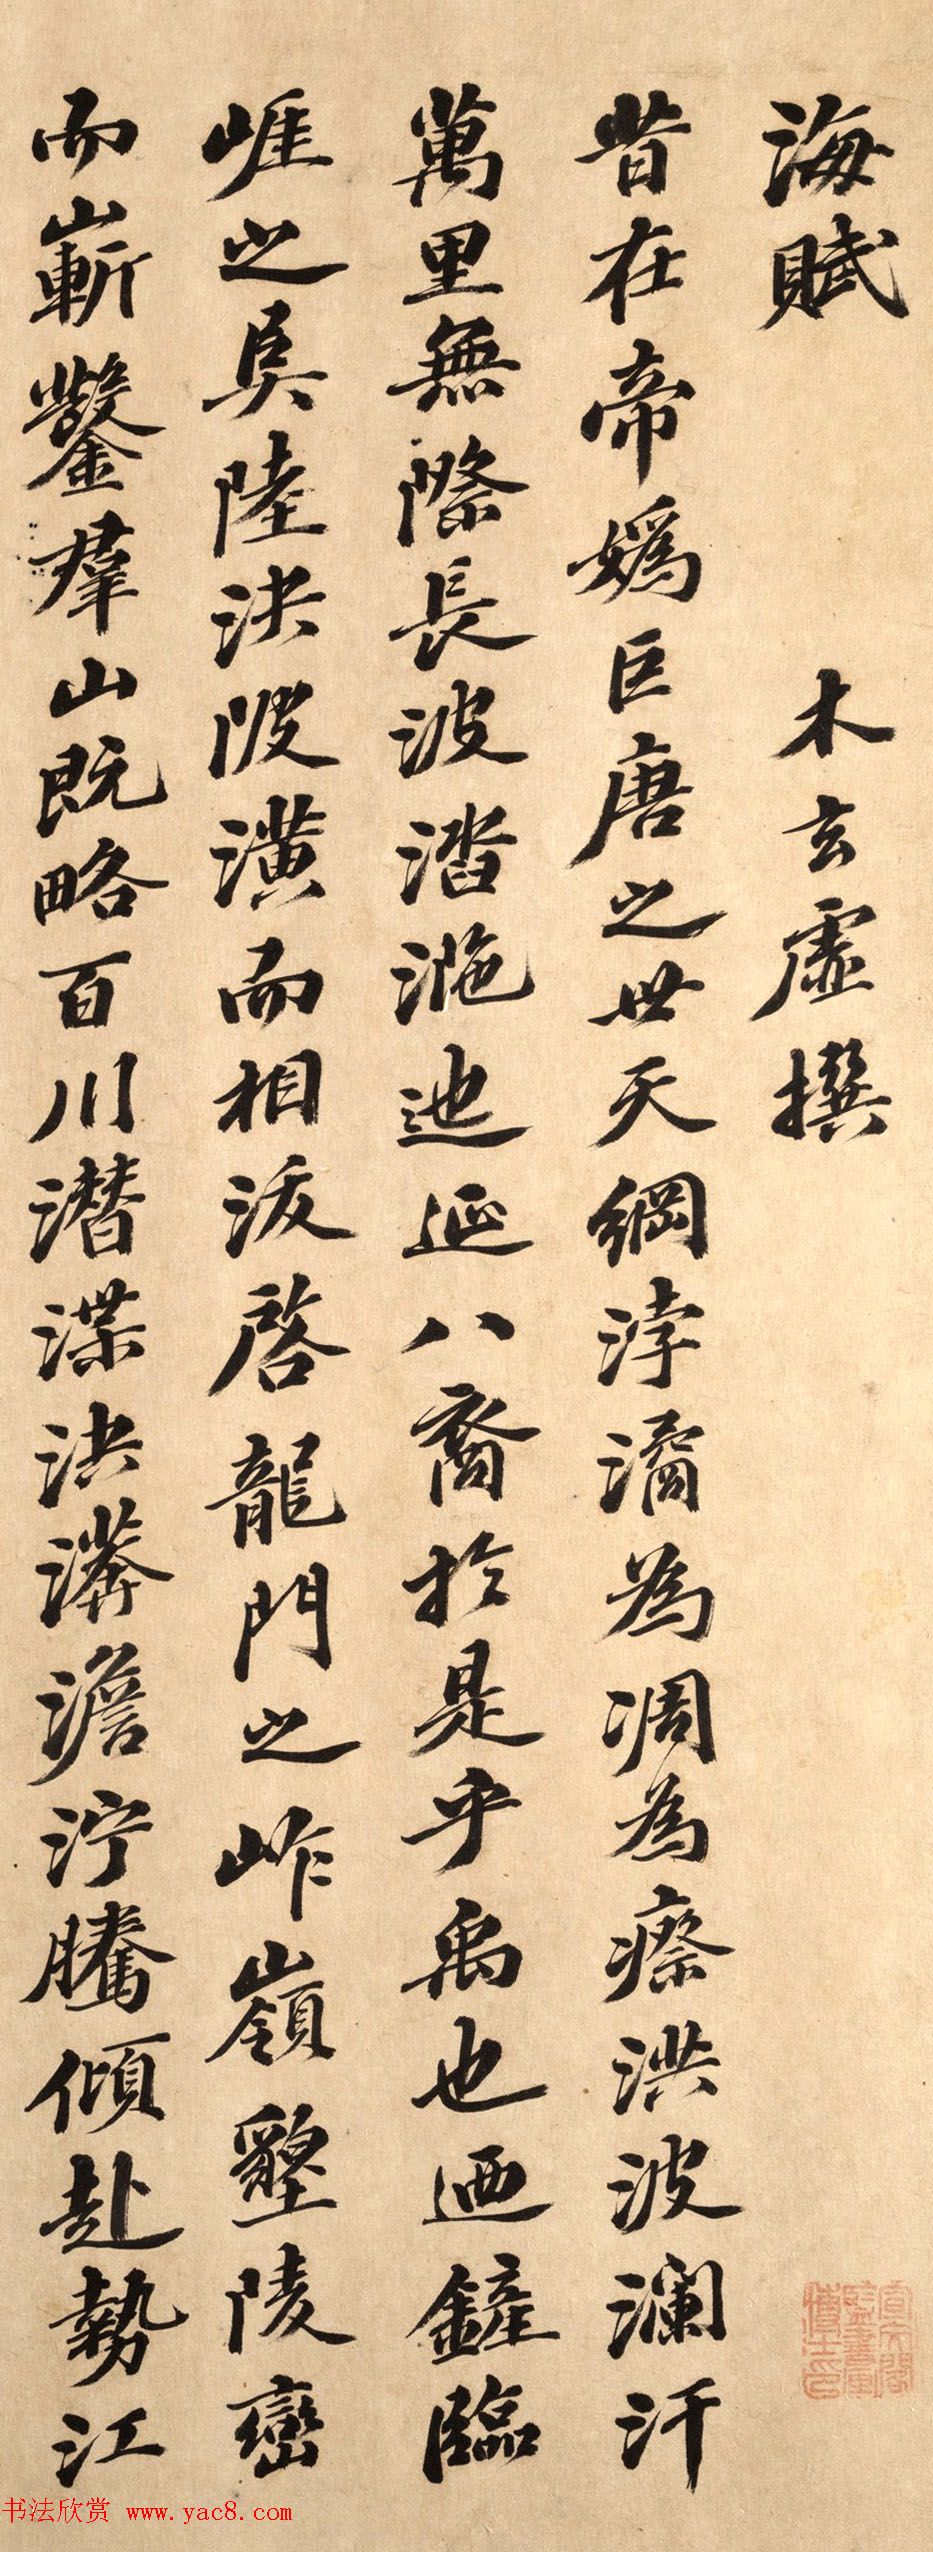 海賦 木玄虛撰
昔在帝媯巨唐之世天綱浡潏為凋為瘵洪波瀾汗
萬里無際長波涾𣶏迆𨒂八裔於是乎禹也迺鏟臨
崕之㕙陸決陂潢而相浚啓龍門之岞嶺墾陵巒
而嶄鑿群山既略百川潛渫泱漭澹泞騰傾赴勢江
宣文閣監書畫博士印
书法欣赏 www.yac8.com